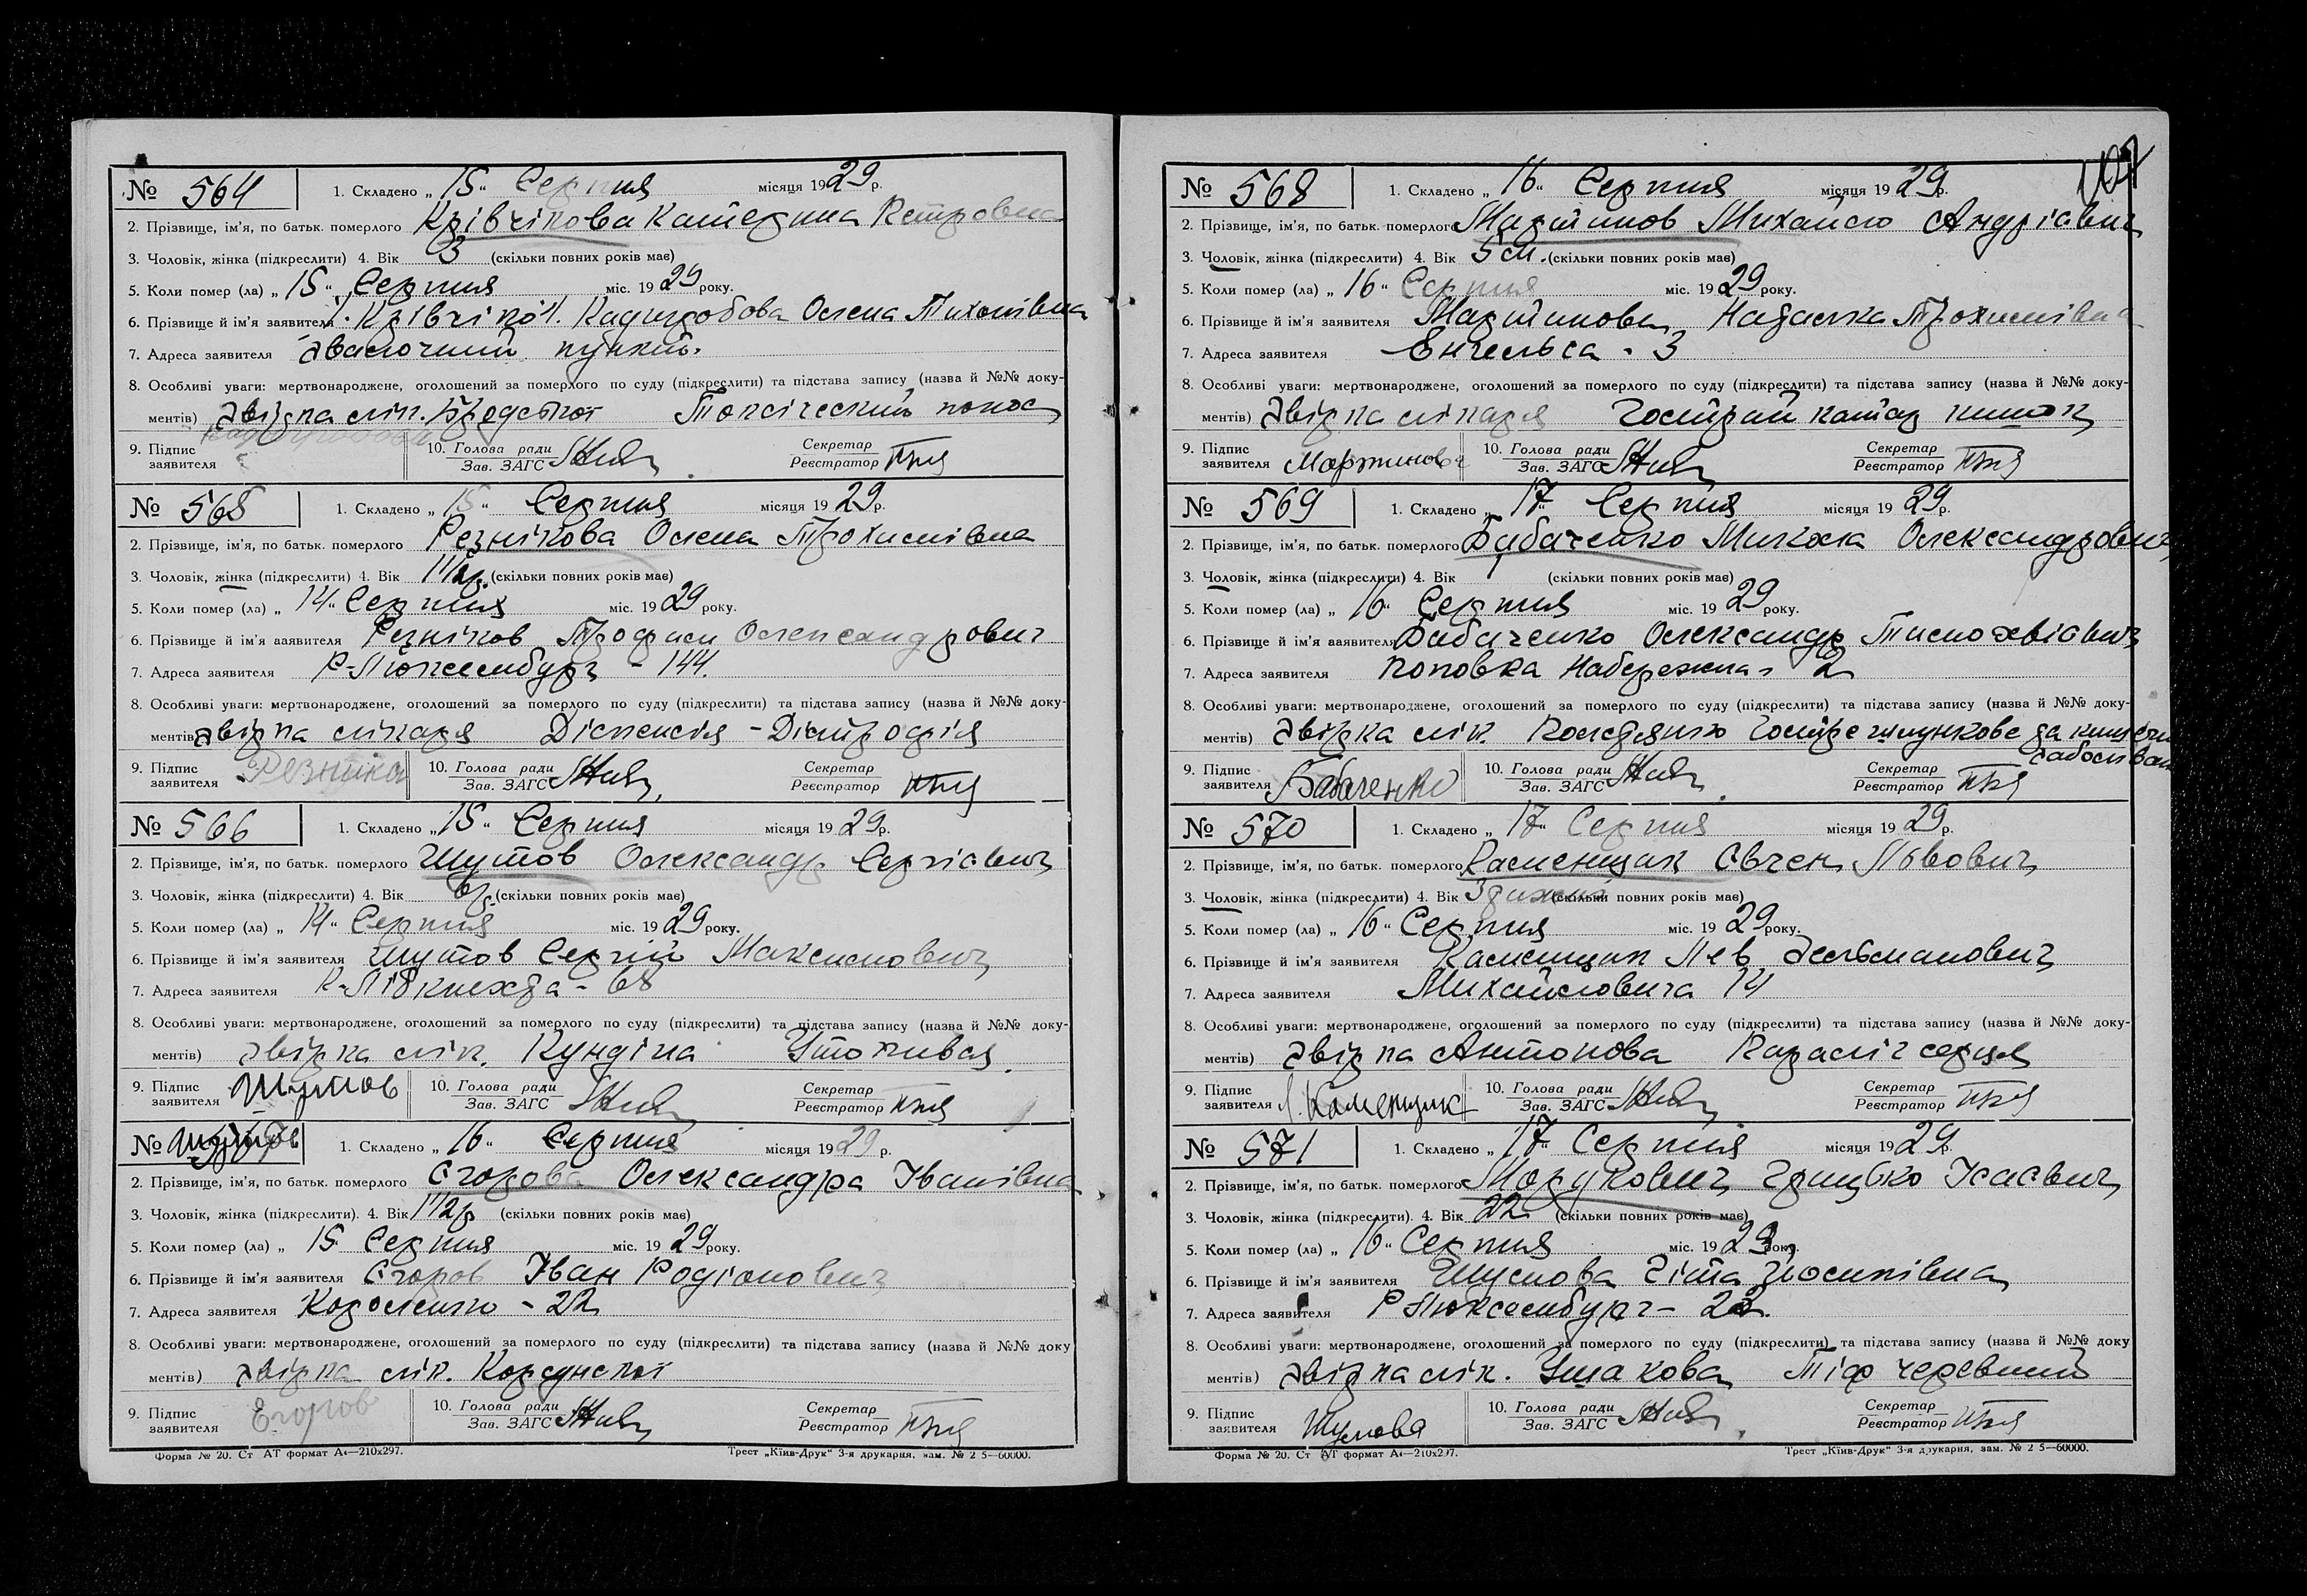 № 564 1. Складено „ 15 “ Серпня місяця 1929 р.
2. Прізвище, ім'я, по батьк. померлого Крівчікова Катерина Петровна
3. Чоловік, жінка (підкреслити) 4. Вік 3 (скільки повних років має)
5. Коли помер (ла) „ 15 “ Серпня міс. 1929 року.
6. Прізвище й ім'я заявителя Олена Тихонівна
7. Адреса заявителя пункт.
8. Особливі уваги: мертвонароджене, оголошений за померлого по суду (підкреслити) та підстава запису (назва й №№ доку-
ментів) Звірка лік. Бродської Токсіческий понос
9. Підпис заявителя 10. Голова ради Зав. ЗАГС Секретар Реєстратор
№ 565 1. Складено „ 15 “ Серпня місяця 1929 р.
2. Прізвище, ім'я, по батьк. померлого Резнікова Олена Трохимівна
3. Чоловік, жінка (підкреслити) 4. Вік 1 1/2 р. (скільки повних років має)
5. Коли помер (ла) „ 14 “ Серпня міс. 1929 року.
6. Прізвище й ім'я заявителя Резніков Трофим Олександрович
7. Адреса заявителя Р-Люксембург - 144.
8. Особливі уваги: мертвонароджене, оголошений за померлого по суду (підкреслити) та підстава запису (назва й №№ доку-
ментів) Звірка лікаря Діспепсія - Дістрофія
9. Підпис заявителя 10. Голова ради Зав. ЗАГС Секретар Реєстратор
№ 566 1. Складено „ 15 “ Серпня місяця 1929 р.
2. Прізвище, ім'я, по батьк. померлого Шутов Олександр Сергієвич
3. Чоловік, жінка (підкреслити) 4. Вік 6 р. (скільки повних років має)
5. Коли помер (ла) „ 14 “ Серпня міс. 1929 року.
6. Прізвище й ім'я заявителя Шутов Сергій Максимович
7. Адреса заявителя К-Лібкнехта - 68
8. Особливі уваги: мертвонароджене, оголошений за померлого по суду (підкреслити) та підстава запису (назва й №№ доку-
ментів) Звірка лік. Кундіна Утопився
9. Підпис заявителя Шутов 10. Голова ради Зав. ЗАГС Секретар Реєстратор
№ 1. Складено „ 16 “ Серпня місяця 1929 р.
2. Прізвище, ім'я, по батьк. померлого Єгорова Олександра Іванівна
3. Чоловік, жінка (підкреслити). 4. Вік 1 1/2 р (скільки повних років має)
5. Коли помер (ла) „ 15 Серпня міс. 1929 року.
6. Прізвище й ім'я заявителя Єгоров Іван Родіонович
7. Адреса заявителя Короленко - 22
8. Особливі уваги: мертвонароджене, оголошений за померлого по суду (підкреслити) та підстава запису (назва й №№ доку
ментів) Звірка лік. Корсунської
9. Підпис заявителя Егоров 10. Голова ради Зав. ЗАГС Секретар Реєстратор
Форма № 20. Ст АТ формат А4—210x297. Трест „Київ-Друк“ 3-я друкарня, зам. № 2 5—60000.
107
№ 568 1. Складено „ 16 “ Серпня місяця 1929 р.
2. Прізвище, ім'я, по батьк. померлого Мартинов Михайло Андрієвич
3. Чоловік, жінка (підкреслити) 4. Вік 5 м. (скільки повних років має)
5. Коли помер (ла) „ 16 “ Серпня міс. 1929 року.
6. Прізвище й ім'я заявителя Мартинова Наталка Трохимівна
7. Адреса заявителя Енгельса - 3
8. Особливі уваги: мертвонароджене, оголошений за померлого по суду (підкреслити) та підстава запису (назва й №№ доку-
ментів) Звірка лікаря Гострий катар кишок
9. Підпис заявителя Мартинова 10. Голова ради Зав. ЗАГС Секретар Реєстратор
№ 569 1. Складено „ 17 “ Серпня місяця 1929 р.
2. Прізвище, ім'я, по батьк. померлого Бабаченко Микола Олександрович
3. Чоловік, жінка (підкреслити) 4. Вік 1 (скільки повних років має)
5. Коли помер (ла) „ 16 “ Серпня міс. 1929 року.
6. Прізвище й ім'я заявителя Бабаченко Олександр Тимохвієвич
7. Адреса заявителя Поповка Набережна 2
8. Особливі уваги: мертвонароджене, оголошений за померлого по суду (підкреслити) та підстава запису (назва й №№ доку-
ментів) Звірка лік. гостре шлункове
9. Підпис заявителя Бабаченко 10. Голова ради Зав. ЗАГС Секретар Реєстратор
№ 570 1. Складено „ 17 “ Серпня місяця 1929 р.
2. Прізвище, ім'я, по батьк. померлого Каменщик Євген Львович
3. Чоловік, жінка (підкреслити) 4. Вік 3 (скільки повних років має)
5. Коли помер (ла) „ 16 “ Серпня міс. 1929 року.
6. Прізвище й ім'я заявителя Каменщик Лев Зельманович
7. Адреса заявителя Михайловича 14
8. Особливі уваги: мертвонароджене, оголошений за померлого по суду (підкреслити) та підстава запису (назва й №№ доку-
ментів) Звірка Антонова Параліч серця
9. Підпис заявителя Л. Каменщик 10. Голова ради Зав. ЗАГС Секретар Реєстратор
№ 571 1. Складено „ 17 “ Серпня місяця 1929 р.
2. Прізвище, ім'я, по батьк. померлого Мордухович Грицько Ісаєвич
3. Чоловік, жінка (підкреслити). 4. Вік 22 (скільки повних років має)
5. Коли помер (ла) „ 16 “ Серпня міс. 1929 року.
6. Прізвище й ім'я заявителя Шумова Гіта Йосипівна
7. Адреса заявителя Р Люксембург -
8. Особливі уваги: мертвонароджене, оголошений за померлого по суду (підкреслити) та підстава запису (назва й №№ доку
ментів) Звірка лік. Ушакова Тіф черевний
9. Підпис заявителя Шумова 10. Голова ради Зав. ЗАГС Секретар Реєстратор
Форма № 20. Ст АТ формат А4—210x297. Трест „Київ-Друк“ 3-я друкарня, зам. № 2 5—60000.